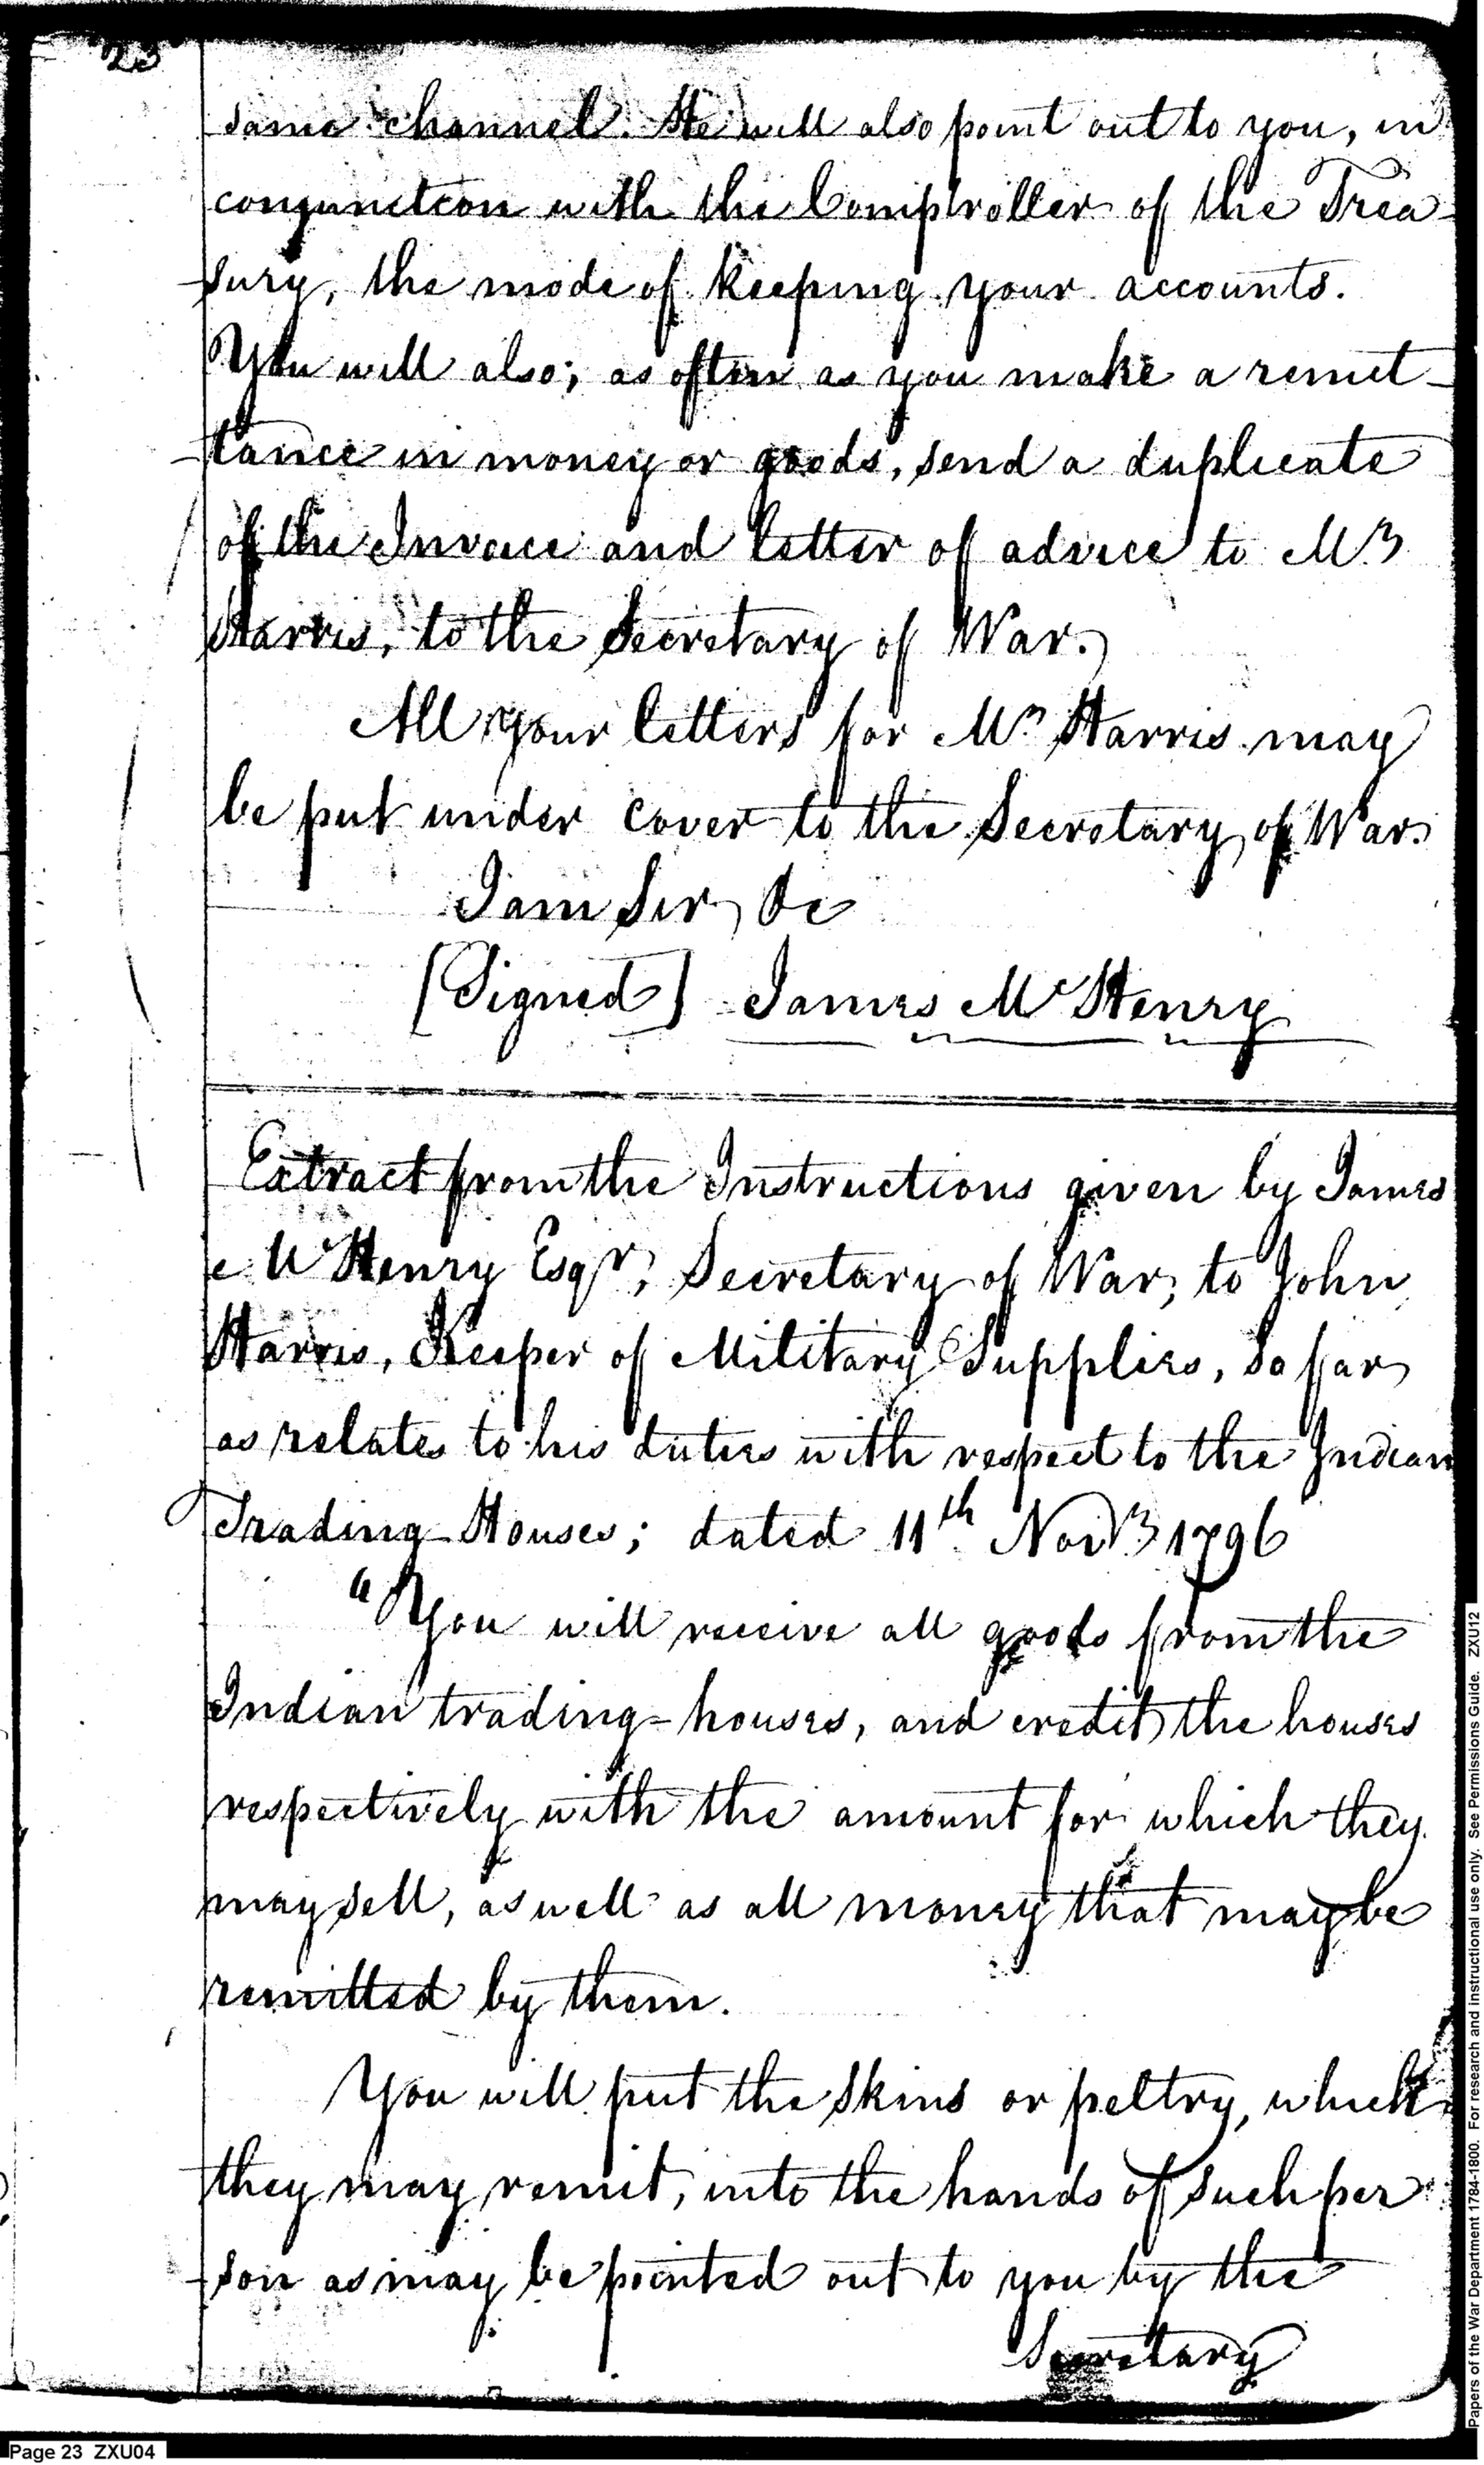 23
same channel. He will also point out to you, in
conjunction with the Comptroller of the Trea-
-sury, the mode of keeping your accounts.
You will also, as often as you make a remit-
-tance in money or goods, send a duplicate
of the Invoice and letter of advice to Mr
Harris, to the Secretary of War.
All your letters for Mr Harris may
be put under cover to the Secretary of War.
I am Sir, &c
[Signed] James McHenry
Extract from the Instructions given by James
McHenry Esqr, Secretary of War, to John
Harris, Keeper of Military Supplies, so far
as relates to his duties with respect to the Indian
Trading Houses; dated 11th Novr 1796
"You will receive all goods from the
Indian trading-houses, and credit the houses
respectively with the amount for which they
may sell, as well as all money that may be
remitted by them.
You will put the skins or peltry, which
they may remit, into the hands of such per
-son as may be pointed out to you by the
Secretary
Page 23 ZXU04
Papers of the War Department 1784-1800. For research and instructional use only. See Permissions Guide. ZXU12